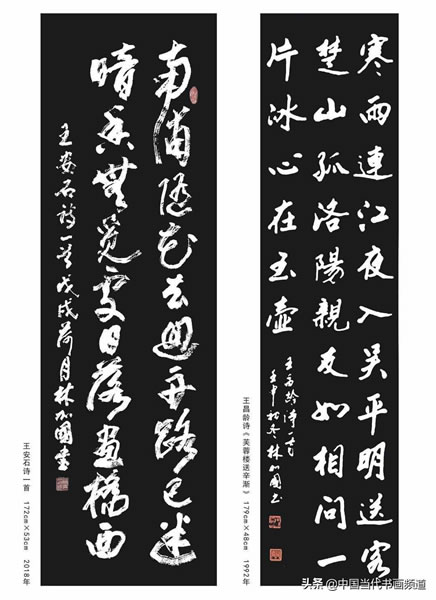 寒雨連江夜入吴平明送客
楚山孤洛陽親友如相問一
片冰心在玉壺
王昌齡詩一首
壬申初冬林加國書
王昌龄诗《芙蓉楼送辛渐》 179cm×48cm 1992年
南浦隨花去迴舟路已迷
暗香無覓處日落畫橋西
王安石詩一首戊戌荷月林加國書
王安石诗一首 172cm×53cm 2018年
头条 @中国当代书画频道